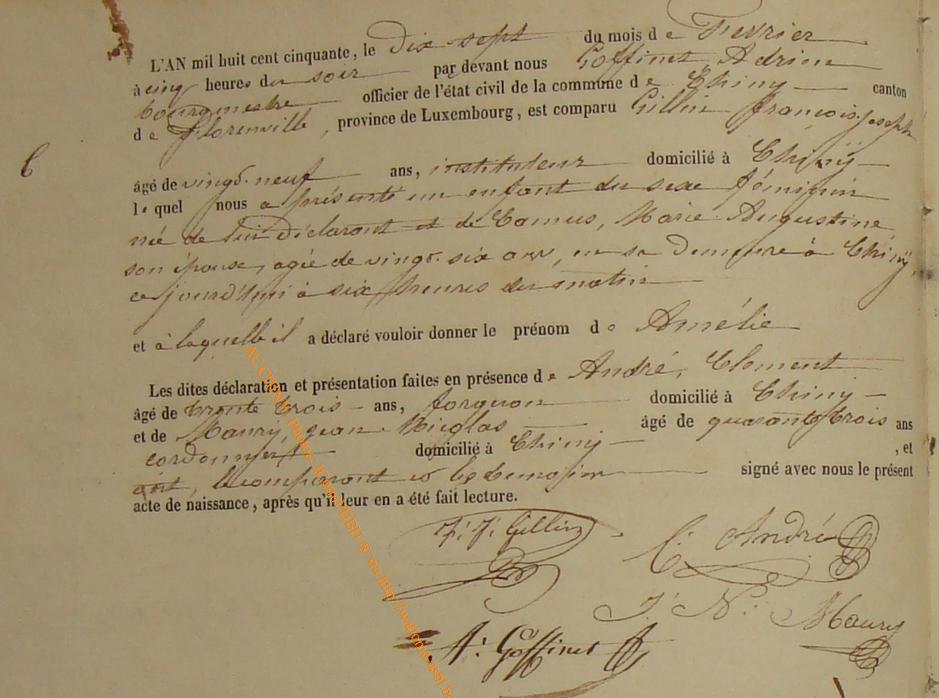 L'AN mil huit cent cinquante, le Dix-sept du mois de Fevrier
à cinq heures du soir par devant nous Goffinet, Adrien
bourgmestre officier de l'état civil de la commune de Chiny canton
de Florenville, province de Luxembourg, est comparu Gillin françois joseph
6
âgé de vingt-neuf ans, instituteur domicilié à Chiny
lequel nous a présenté un enfant du sexe féminin
née de lui Déclarant et de Camus, Marie Augustine,
son épouse, agée de vingt-six ans, en sa Demeure à Chiny,
ce jourd'hui à six heures du matin
et à laquelle il a déclaré vouloir donner le prénom de Amélie
Les dites déclaration et présentation faites en présence de André, Clement
âgé de trente trois ans, domicilié à Chiny
et de Maury, jean Nicolas âgé de quarante trois ans
cordonnier domicilié à Chiny, et
ont, le comparant et les temoins signé avec nous le présent
acte de naissance, après qu'il leur en a été fait lecture.
F: J: Gillin
C. André
J: N: Maury
A: Goffinet